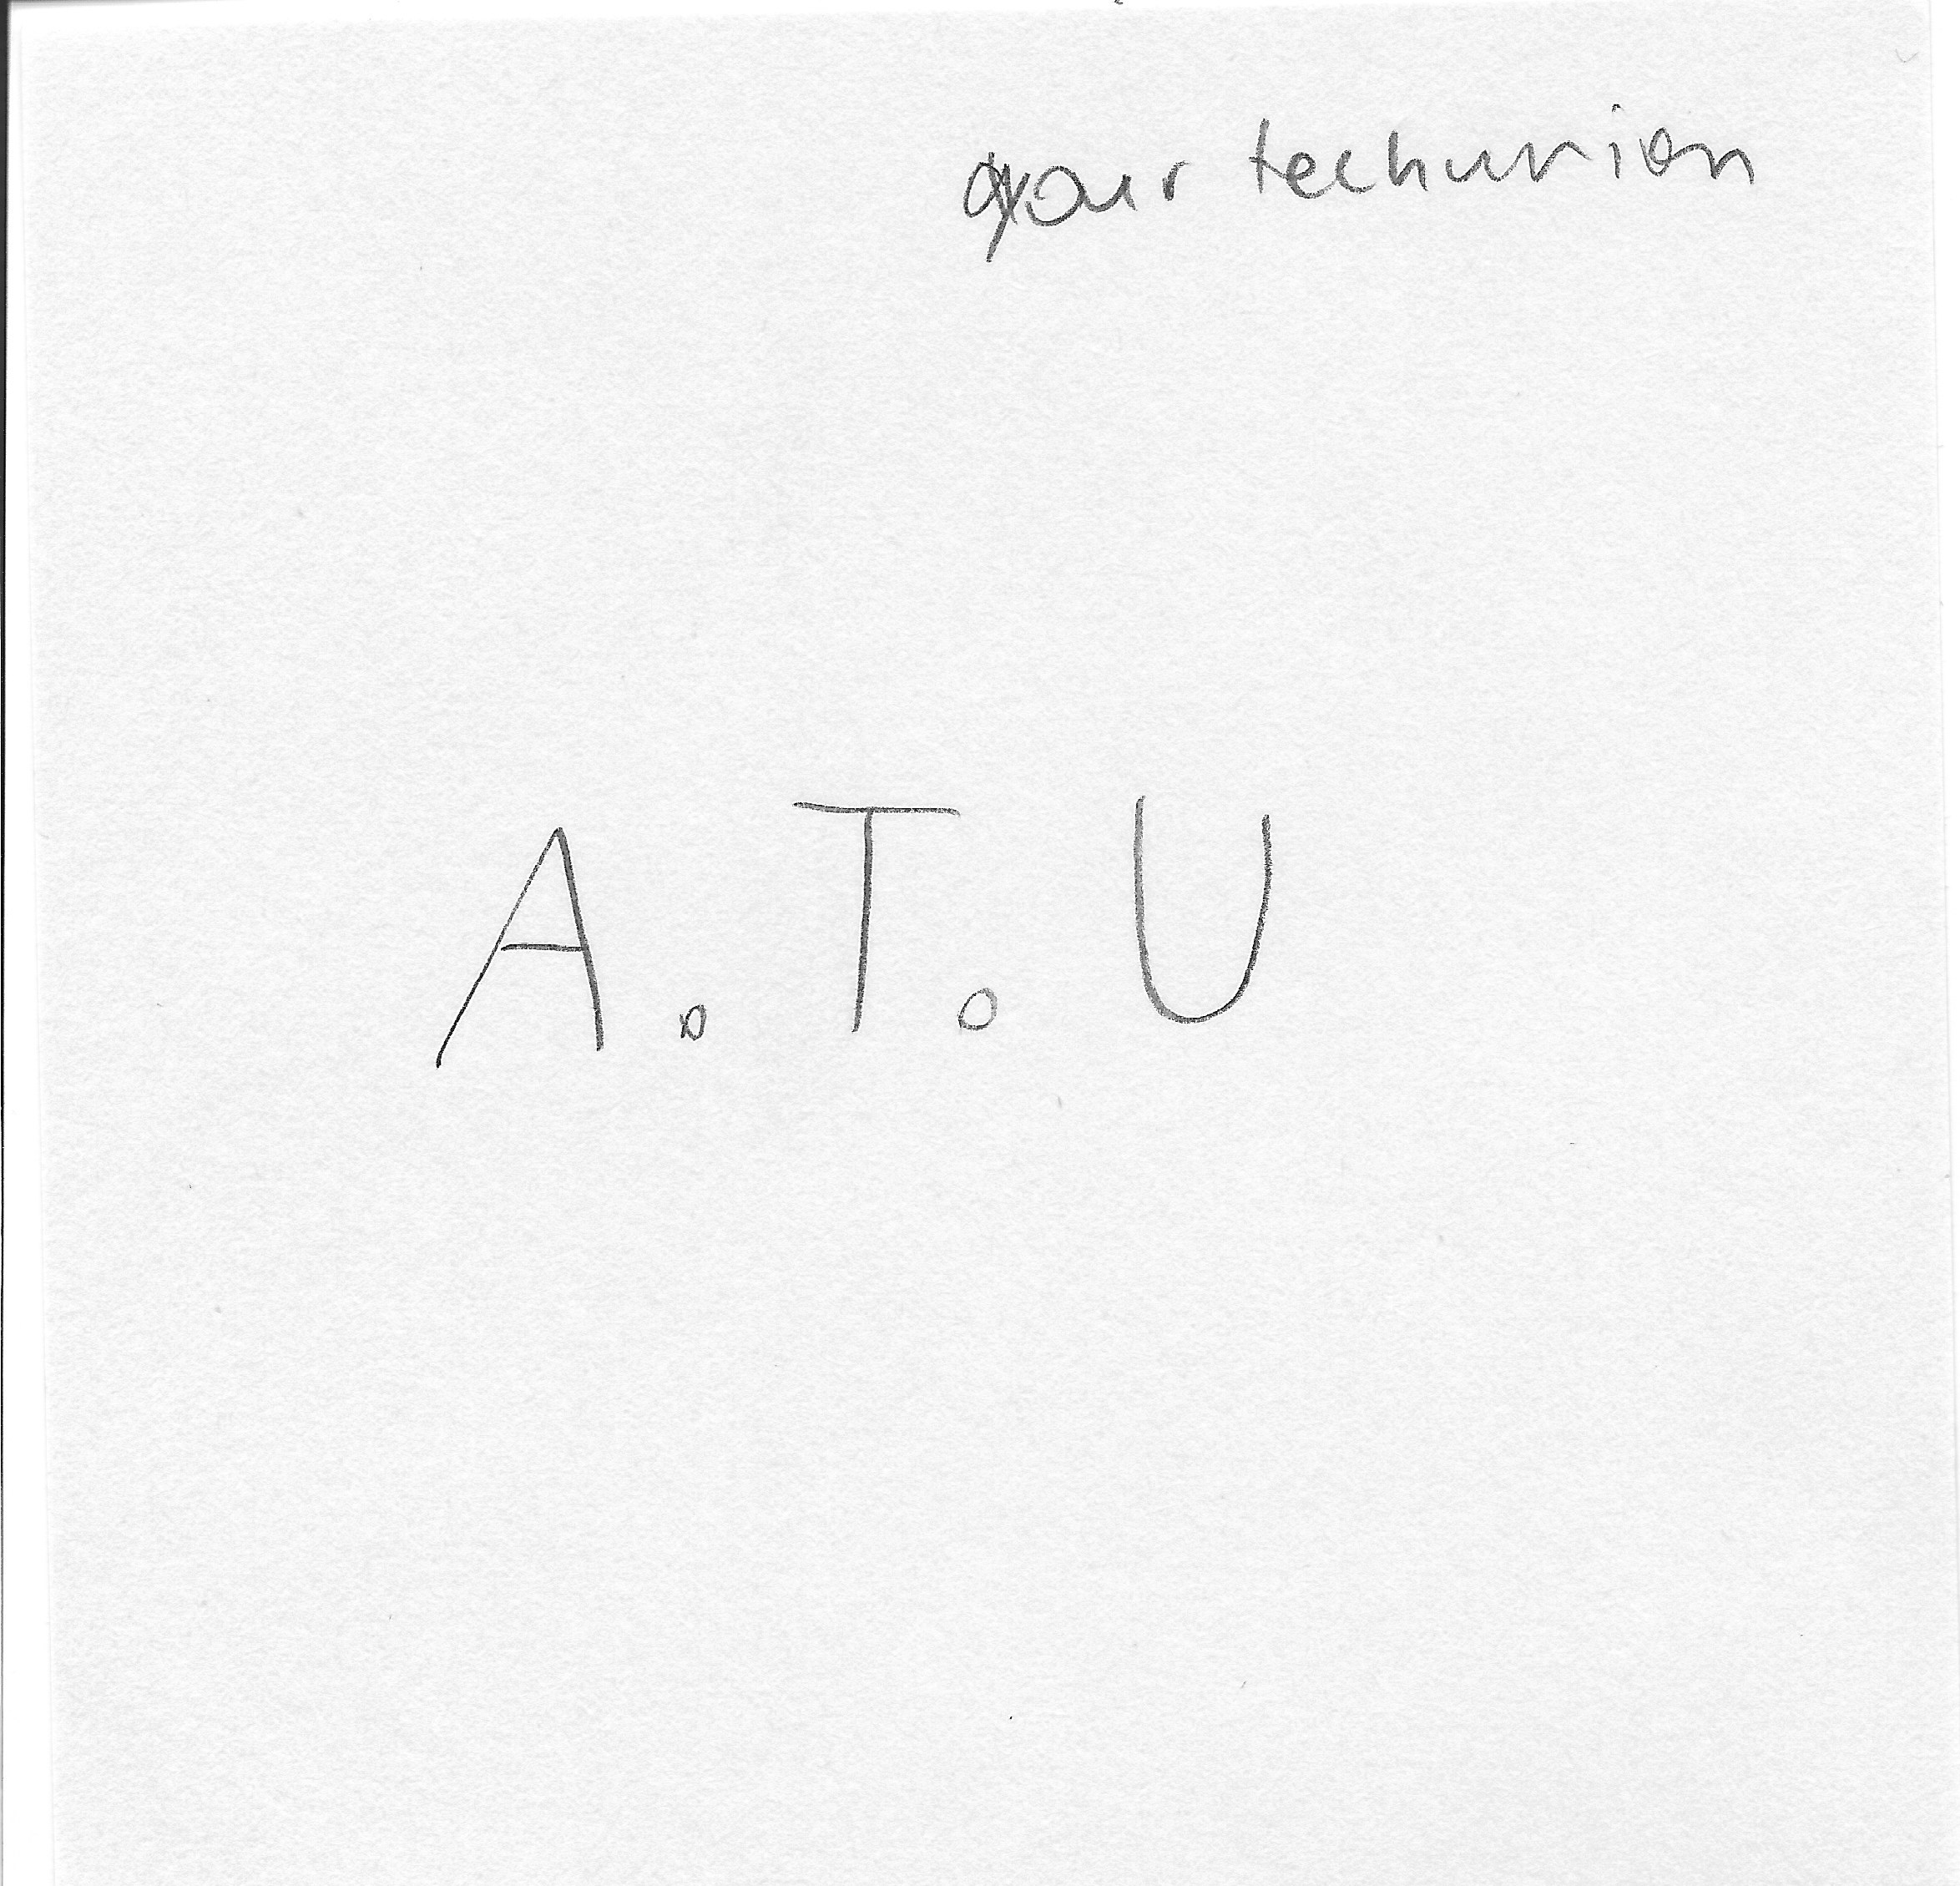 your techurion
A.T.U